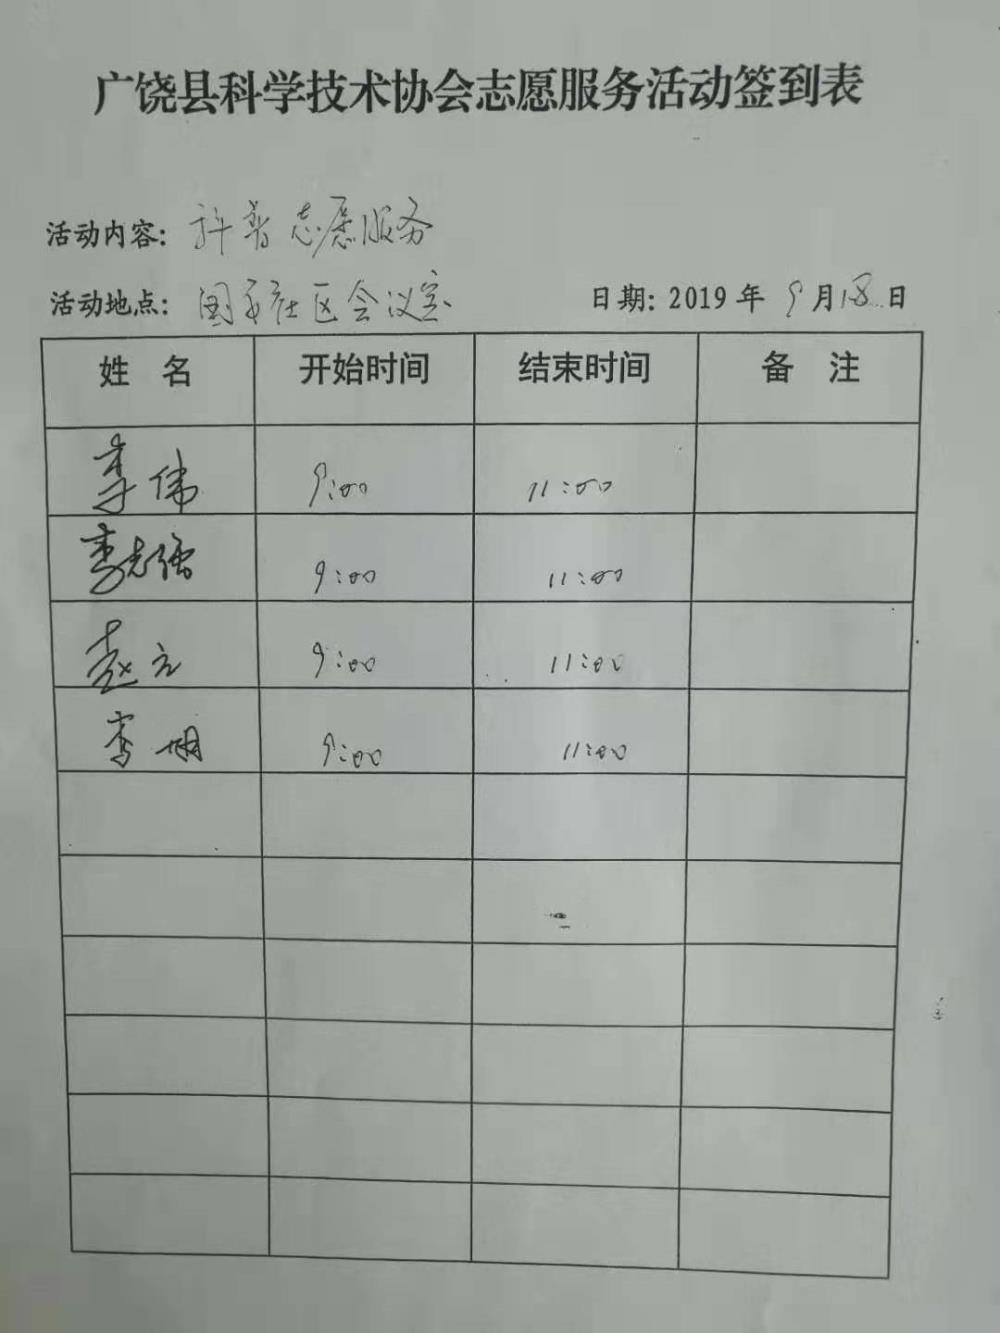 广饶县科学技术协会志愿服务活动签到表
活动内容：科普志愿服务
活动地点：国安社区会议室 日期：2019年9月18日
姓 名 开始时间 结束时间 备 注
李伟 9:00 11:00
李志强 9:00 11:00
赵立 9:00 11:00
9:00 11:00